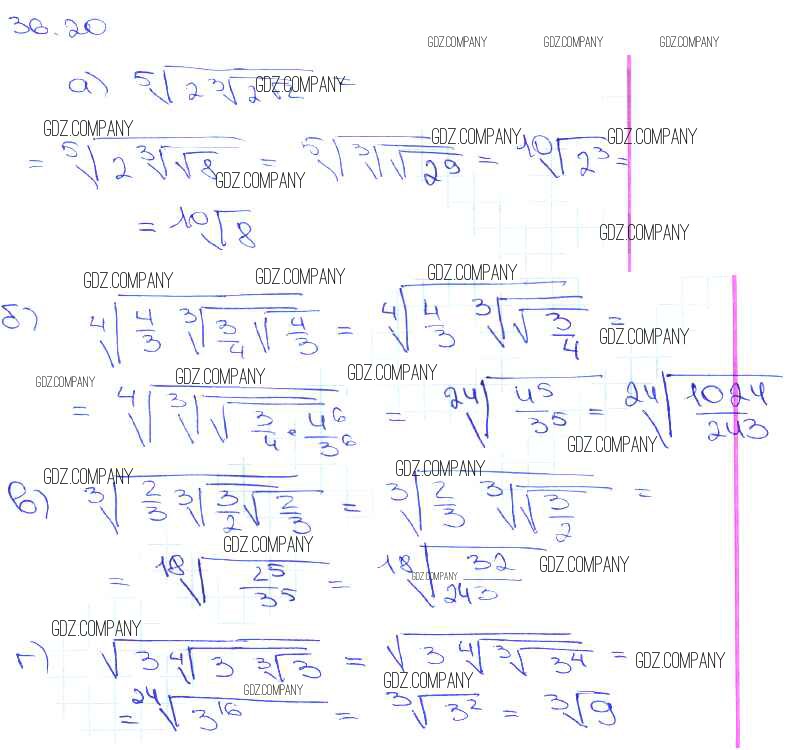 36.20
GDZ.COMPANY GDZ.COMPANY GDZ.COMPANY
а) ⁵√(2 ³√(2√2)) =
GDZ.COMPANY
GDZ.COMPANY GDZ.COMPANY GDZ.COMPANY
= ⁵√(2 ³√(√8)) = ⁵√(³√(√(2⁹))) = ¹⁰√(2³) =
GDZ.COMPANY
= ¹⁰√8
GDZ.COMPANY
GDZ.COMPANY GDZ.COMPANY GDZ.COMPANY
б) ⁴√(4/3 ³√(3/4 √(4/3))) = ⁴√(4/3 ³√(√(3/4))) =
GDZ.COMPANY
GDZ.COMPANY GDZ.COMPANY GDZ.COMPANY
= ⁴√(³√(√(3/4 · 4⁶/3⁶))) = ²⁴√(4⁵/3⁵) = ²⁴√(1024/243)
GDZ.COMPANY
GDZ.COMPANY GDZ.COMPANY
в) ³√(2/3 ³√(3/2 √(2/3))) = ³√(2/3 ³√(√(3/2))) =
GDZ.COMPANY
= ¹⁸√(2⁵/3⁵) = ¹⁸√(32/243)
GDZ.COMPANY GDZ.COMPANY
GDZ.COMPANY
г) √(3 ⁴√(3 ³√3)) = √(3 ⁴√(³√(3⁴))) =
GDZ.COMPANY
GDZ.COMPANY GDZ.COMPANY
= ²⁴√(3¹⁶) = ³√(3²) = ³√9